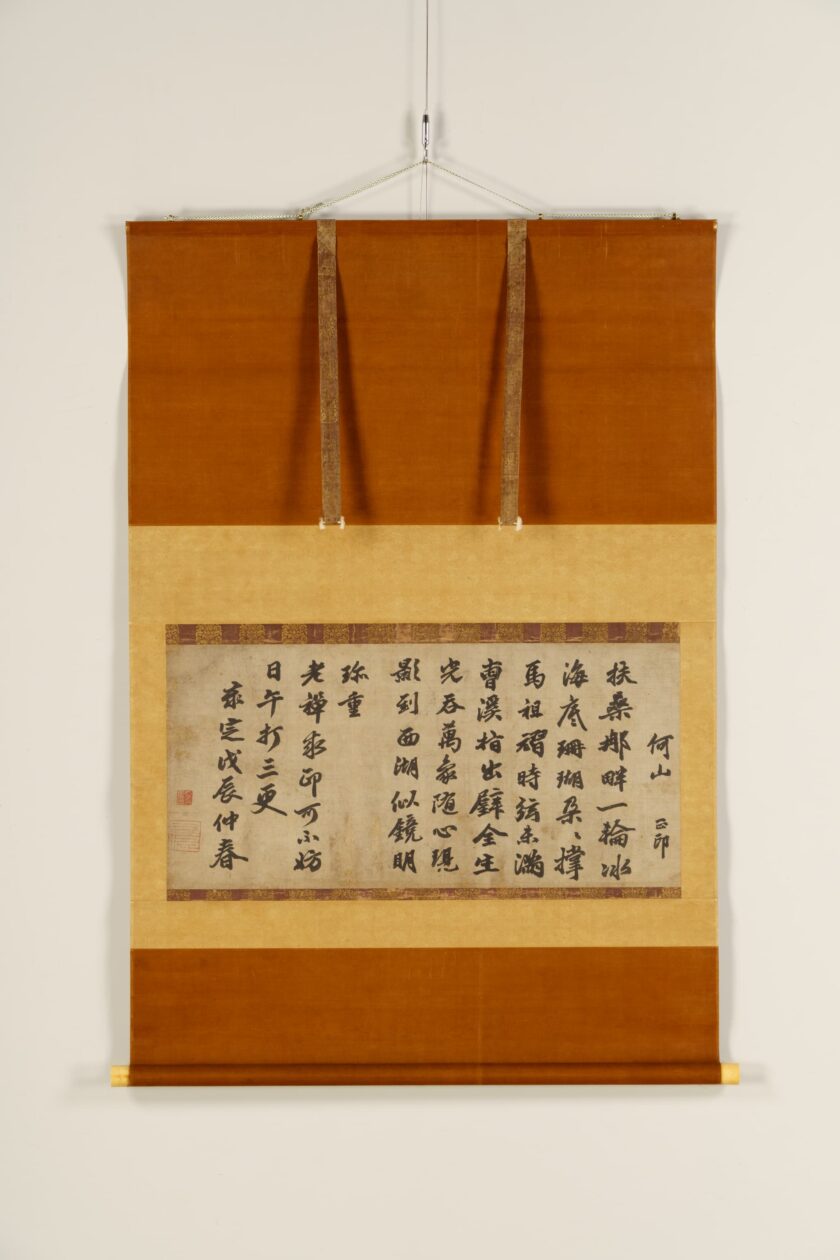 何山 正印
扶桑那畔一輪冰
海底珊瑚朶〻撑
馬祖翫時弦未滿
曹溪指出璧全生
光吞萬象随心現
影到西湖似鏡明
珎重
老禅求印可不妨
日午打三更
泰定戊辰仲春